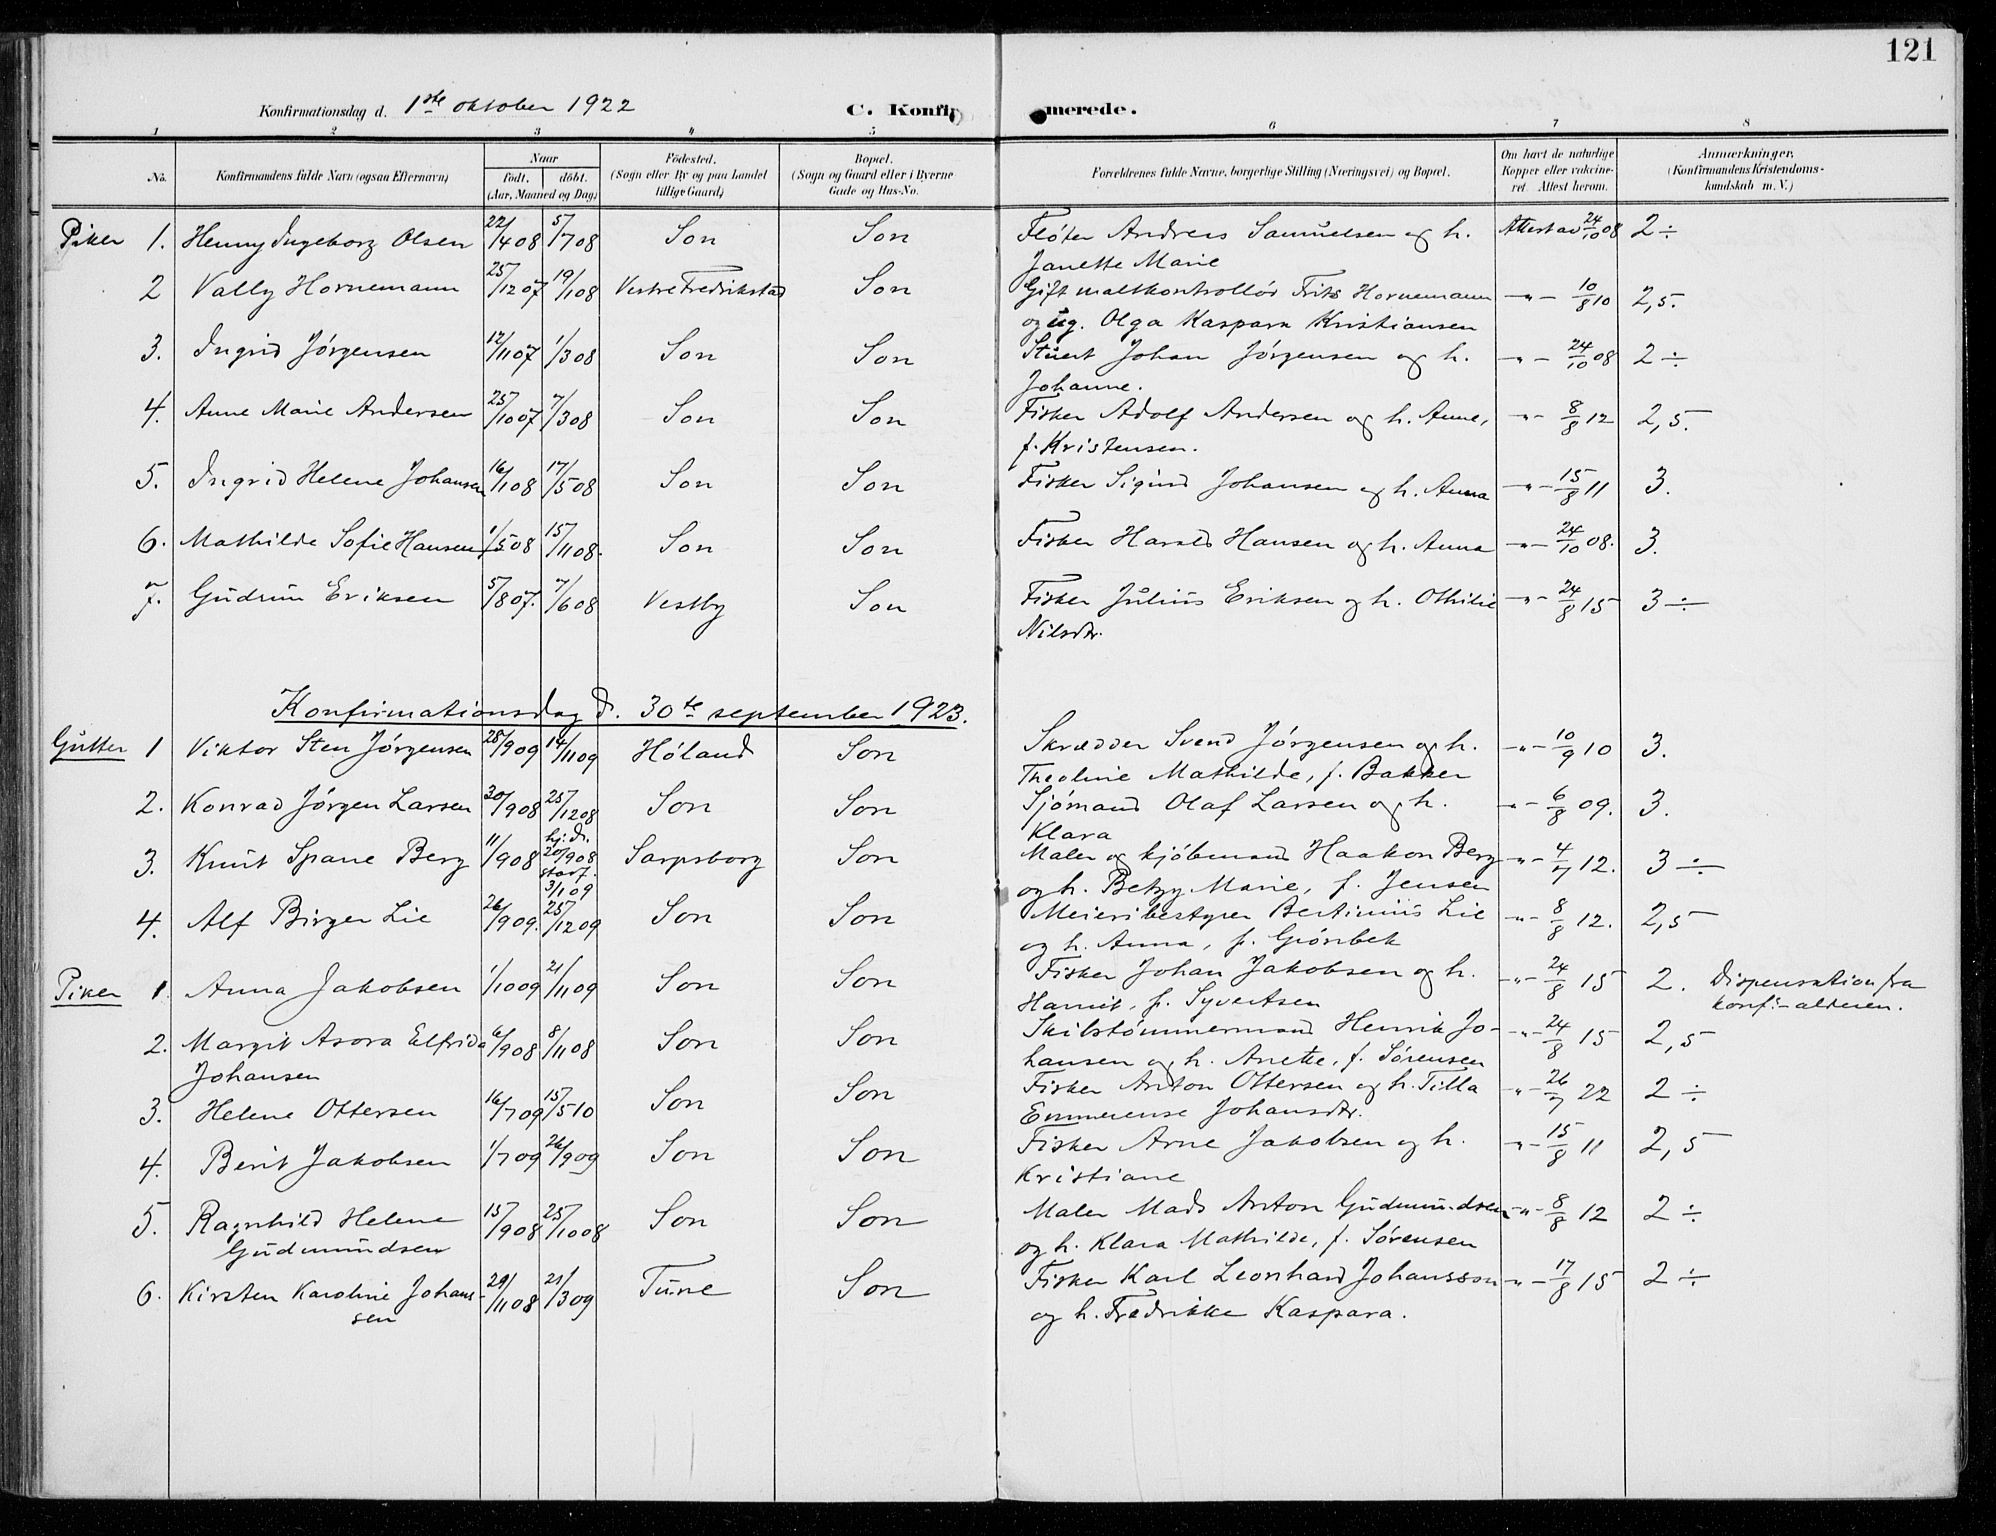 121
Konfirmationsdag d. 1ste oktober 1922 C. Konfir merede.
1 2 3 4 5 6 7 8
No. Konfirmandens fulde Navn (ogsaa Efternavn) Naar født. døbt. (Aar, Maaned og Dag) Fødested. (Sogn eller By og paa Landet tillige Gaard) Bopæl. (Sogn og Gaard eller i Byerne Gade og Hus-No. Forældrenes fulde Navne, borgerlige Stilling (Næringsvei) og Bopæl. Om havt de naturlige Kopper eller vakcineret. Attest herom. Anmærkninger. (Konfirmandens Kristendomskundskab m. V.)
Piker 1. Henny Ingeborg Olsen 22/4 08 5/7 08 Son Son Fløter Andreas Samuelsen og h. Attest av 24/10 08 2 ÷
Janette Marie
2 Vally Hornemann 25/12 07 19/1 08 Vestre Fredrikstad Son Gift maltkontrollør Frits Hornemann -"- 10/8 10 2,5.
og ug. Olga Kaspara Kristiansen
3. Ingrid Jørgensen 12/11 07 1/3 08 Son Son Stuert Johan Jørgensen og h. -"- 24/10 08 2 ÷
Johanne.
4. Anne Marie Andersen 25/10 07 7/3 08 Son Son Fisker Adolf Andersen og h. Anne, -"- 8/8 12 2,5.
f. Kristensen.
5. Ingrid Helene Johansen 16/1 08 17/5 08 Son Son Fisker Sigurd Johansen og h. Anna -"- 15/8 11 3.
6. Mathilde Sofie Hansen 1/5 08 15/11 08. Son Son Fisker Harald Hansen og h. Anna -"- 24/10 08. 3.
7. Gudrun Eriksen 5/8 07. 7/6 08 Vestby Son Fisker Julius Eriksen og h. Othilie -"- 24/8 15 3 ÷
Nilsdr.
Konfirmationsdag d. 30te september 1923.
Gutter 1 Viktor Sten Jørgensen 28/9 09 14/11 09 Høland Son Skrædder Svend Jørgensen og h. -"- 10/9 10 3.
Theoline Mathilde, f. Bakker
2. Konrad Jørgen Larsen 30/9 08 25/12 08 Son Son Sjømand Olaf Larsen og h. -"- 6/8 09. 3.
Klara
3. Knut Spane Berg 11/9 08 hj. d. 20/9 08 stadf. 3/1 09 Sarpsborg Son Maler og kjøbmand Haakon Berg -"- 4/7 12. 3 ÷
og h. Betzy Marie, f. Jensen
4. Alf Birger Lie 26/9 09. 25/12 09 Son Son Meieribestyrer Bertinius Lie -"- 8/8 12. 2,5
og h. Anna, f. Grønbek
Piker 1 Anna Jakobsen 1/10 09 21/11 09 Son Son Fisker Johan Jakobsen og h. -"- 24/8 15 2. Dispensation fra
f. Syvertsen konf.-alderen.
2. Margit Asora Elfrida 6/9 08 8/11 08 Son Son Skibstømmermand Henrik Jo- -"- 24/8 15 2,5
Johansen hansen og h. Anette, f. Sørensen
3. Helene Ottersen 16/7 09 15/5 10 Son Son Fisker Anton Ottersen og h. Tilla -"- 26/7 22 2 ÷
Emmerense Johansdr.
4. Berit Jakobsen 1/7 09 26/9 09 Son Son Fisker Arne Jakobsen og h. -"- 15/8 11 2,5
Kristiane
5. Ragnhild Helene 15/9 08 25/10 08 Son Son Maler Mads Anton Gudmundsen -"- 8/8 12 2 ÷
Gudmundsen og h. Klara Mathilde, f. Sørensen
6. Kirsten Karoline Johan- 29/11 08 21/3 09 Tune Son Fisker Karl Leonhard Johansson -"- 17/8 15 2 ÷
sen og h. Fredrikke Kaspara.